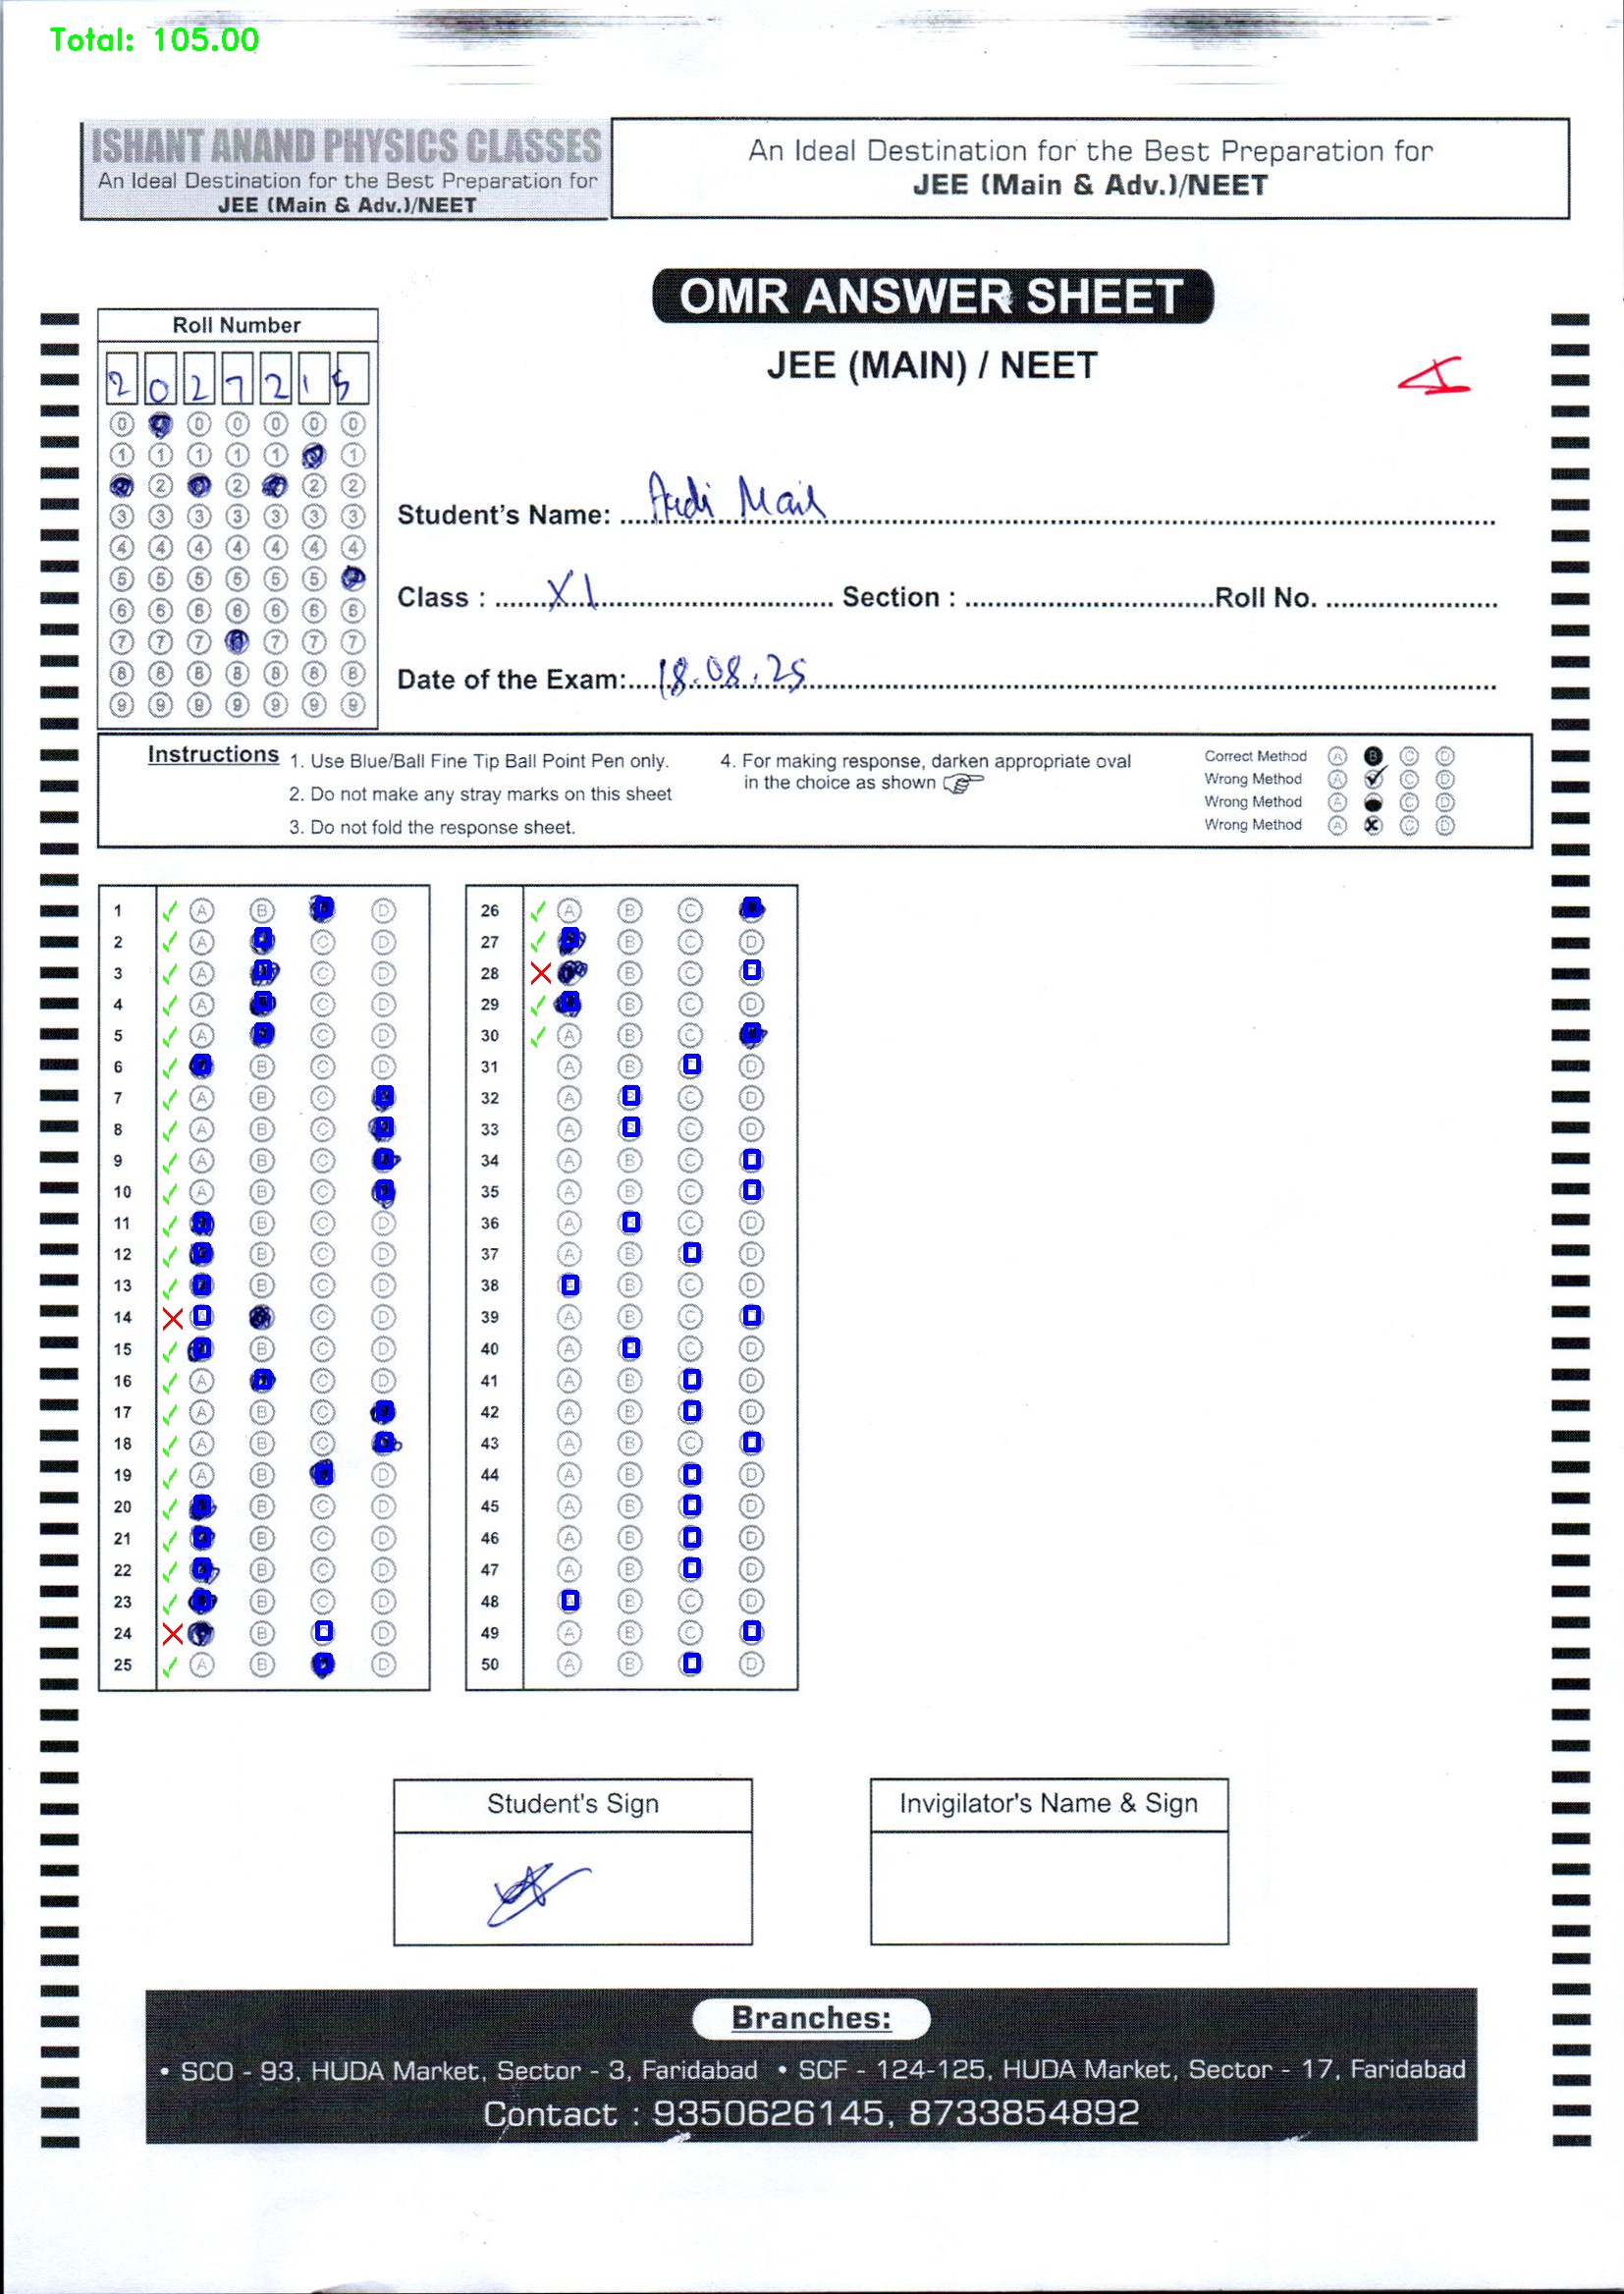 Total: 105.00
ISHANT ANAND PHYSICS CLASSES
An Ideal Destination for the Best Preparation for
JEE (Main & Adv.)/NEET
An Ideal Destination for the Best Preparation for
JEE (Main & Adv.)/NEET
OMR ANSWER SHEET
JEE (MAIN) / NEET
Roll Number
2 0 2 7 2 1 5
0 0 0 0 0 0
1 1 1 1 1 1
2 2 2 2
3 3 3 3 3 3 3
4 4 4 4 4 4 4
5 5 5 5 5 5
6 6 6 6 6 6 6
7 7 7 7 7 7
8 8 8 8 8 8 8
9 9 9 9 9 9 9
Student's Name:
Class : XI Section : Roll No.
Date of the Exam: 18.08.25
Instructions
1. Use Blue/Ball Fine Tip Ball Point Pen only.
2. Do not make any stray marks on this sheet
3. Do not fold the response sheet.
4. For making response, darken appropriate oval
in the choice as shown
Correct Method A B C D
Wrong Method A C D
Wrong Method A C D
Wrong Method A C D
1 A B D
2 A C D
3 A C D
4 A C D
5 A C D
6 B C D
7 A B C
8 A B C
9 A B C
10 A B C
11 B C D
12 B C D
13 B C D
14 C D
15 B C D
16 A C D
17 A B C
18 A B C
19 A B D
20 B C D
21 B C D
22 B C D
23 B C D
24 B D
25 A B D
26 A B C
27 B C D
28 B C
29 B C D
30 A B C
31 A B D
32 A C D
33 A C D
34 A B C
35 A B C
36 A C D
37 A B D
38 B C D
39 A B C
40 A C D
41 A B D
42 A B D
43 A B C
44 A B D
45 A B D
46 A B D
47 A B D
48 B C D
49 A B C
50 A B D
Student's Sign
Invigilator's Name & Sign
Branches:
• SCO - 93, HUDA Market, Sector - 3, Faridabad • SCF - 124-125, HUDA Market, Sector - 17, Faridabad
Contact : 9350626145, 8733854892